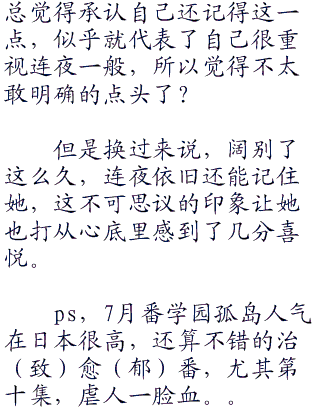 总觉得承认自己还记得这一
点，似乎就代表了自己很重
视连夜一般，所以觉得不太
敢明确的点头了？
但是换过来说，阔别了
这么久，连夜依旧还能记住
她，这不可思议的印象让她
也打从心底里感到了几分喜
悦。
ps，7月番学园孤岛人气
在日本很高，还算不错的治
（致）愈（郁）番，尤其第
十集，虐人一脸血。。